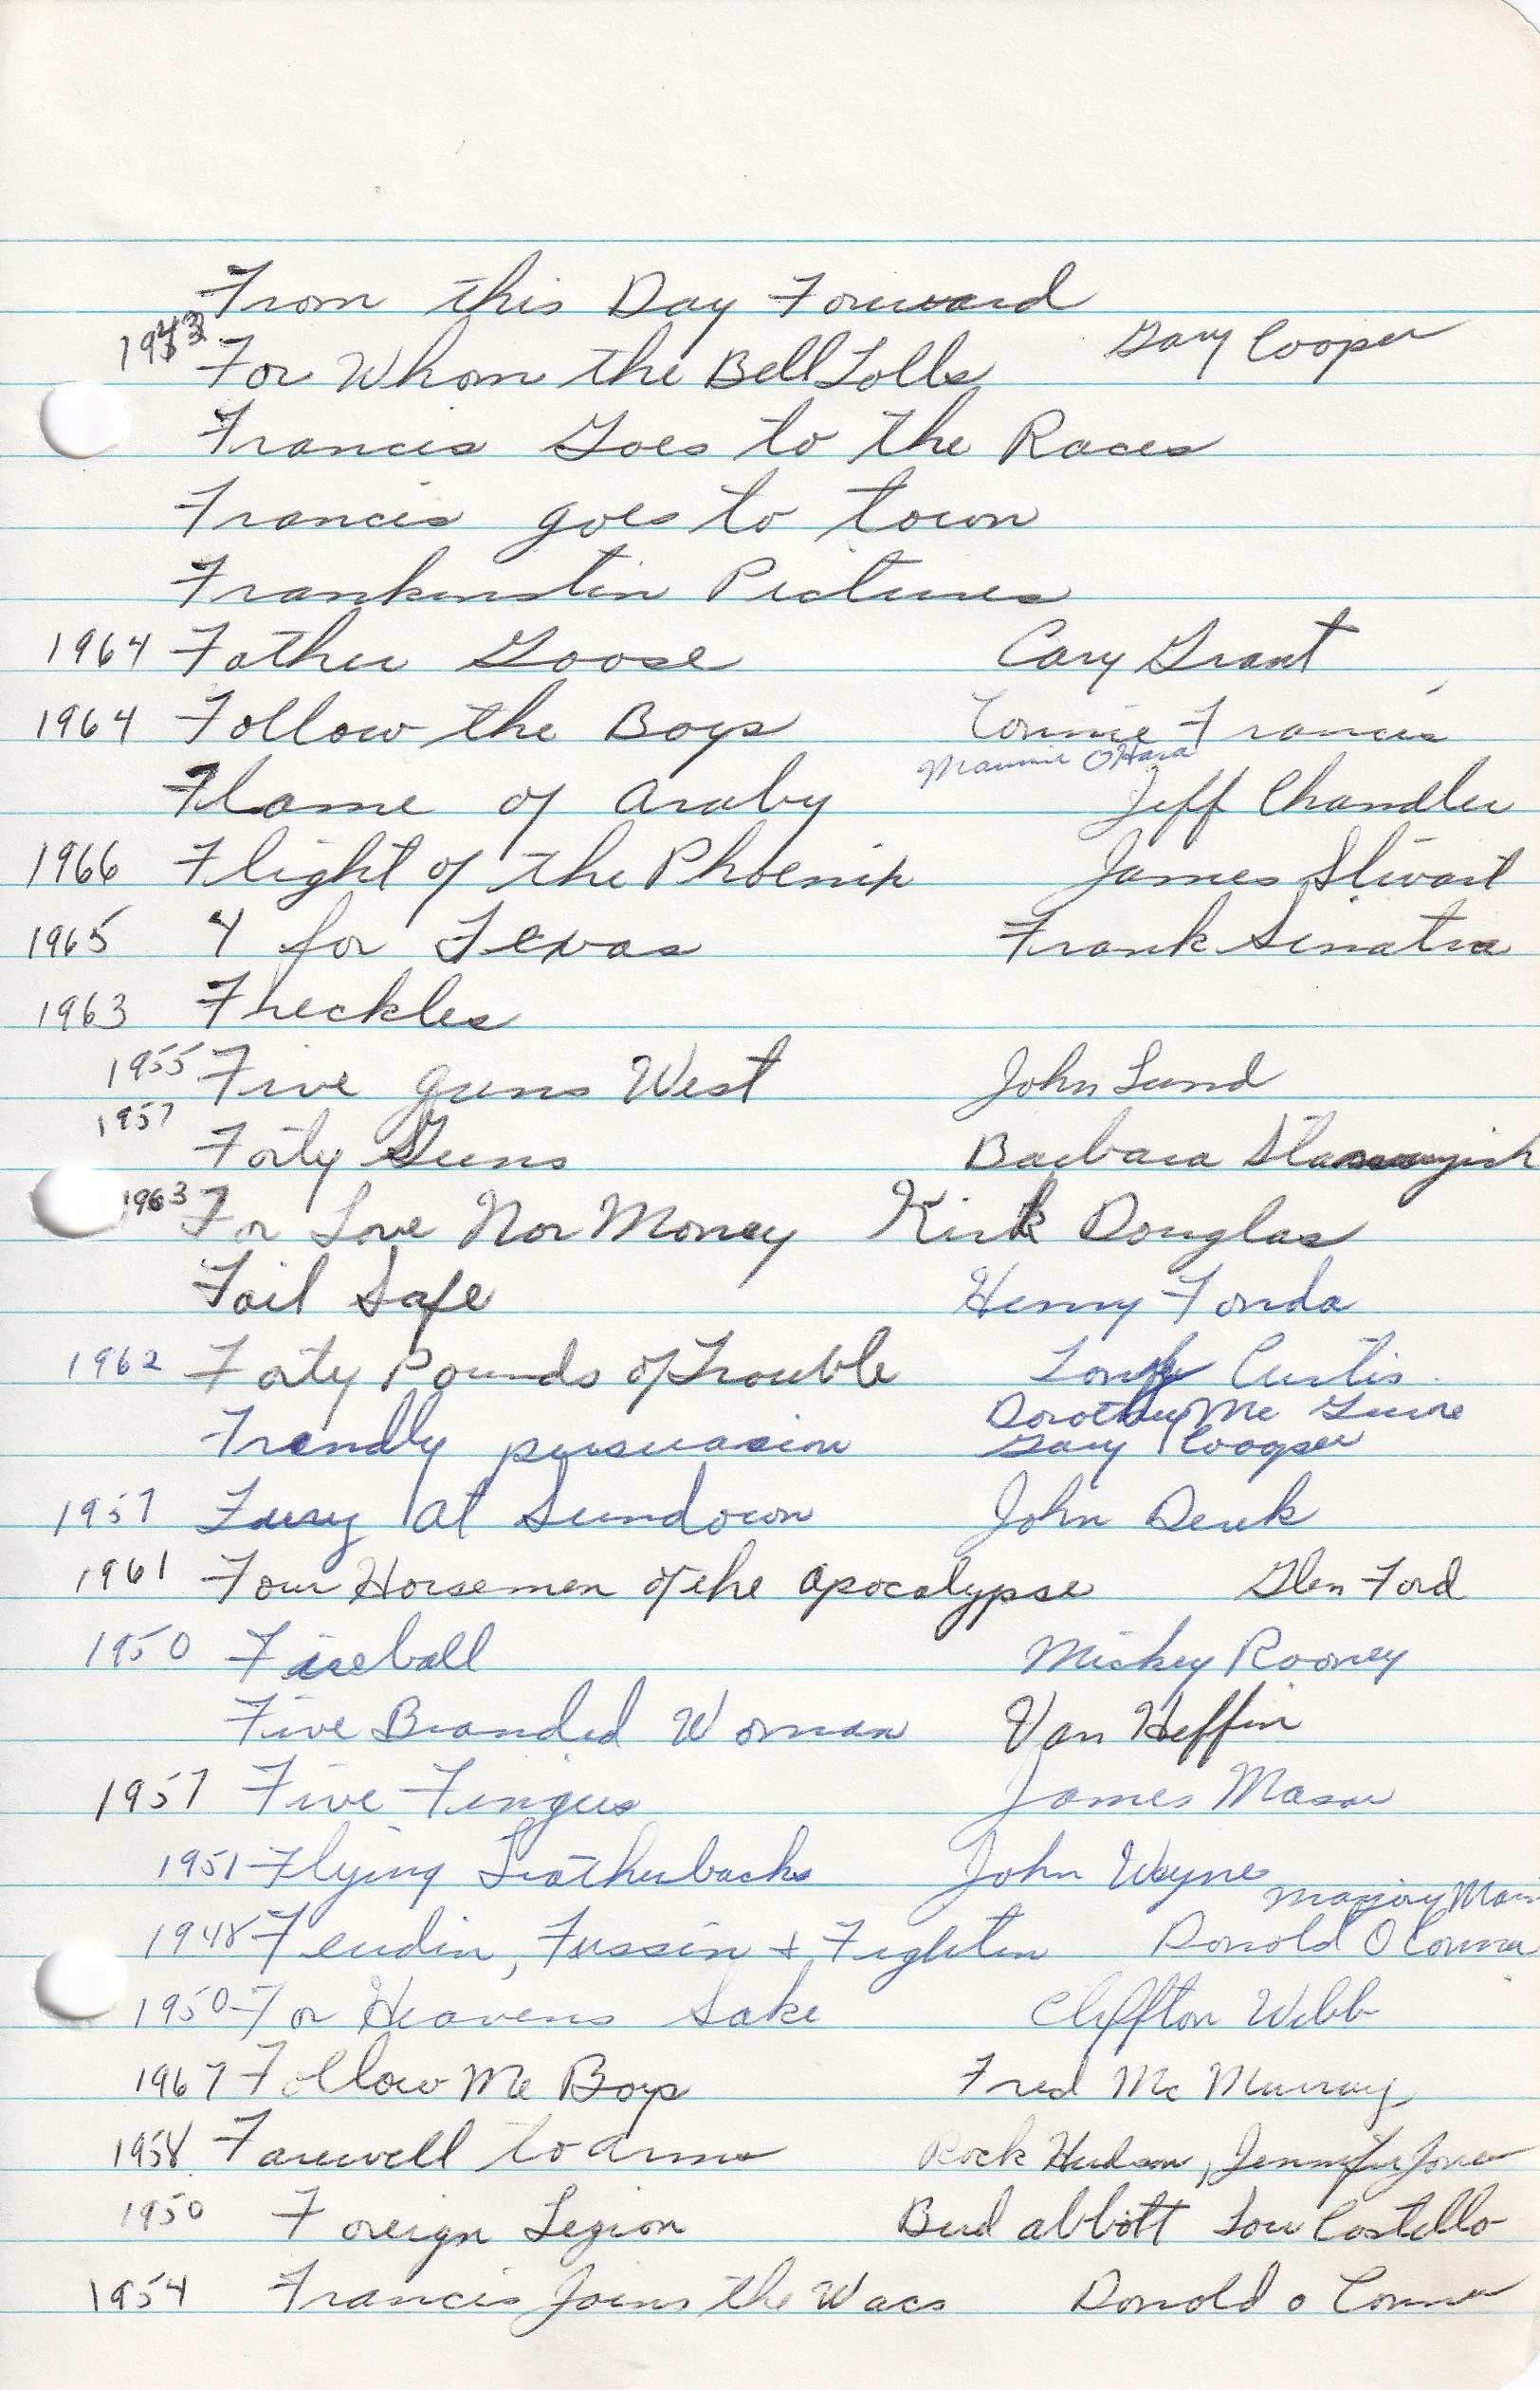 From this Day Forward
1943 For Whom the Bell Tolls Gary Cooper
Francis Goes to the Races
Francis goes to town
Frankinstin Pictures
1964 Father Goose Cary Grant
1964 Follow the Boys Connie Francis
Maurine O'Hara
Flame of Araby Jeff Chandler
1966 Flight of the Phoenix James Stewart
1965 4 for Texas Frank Sinatra
1963 Freckles
1955 Five guns West John Lund
1957 Forty Guns Barbara
1963 For Love Nor Money Kirk Douglas
Fail Safe Henry Fonda
1962 Forty Pounds of Trouble Tony Curtis
Dorothy Mc Guire
Frendly persuasion Gary Cooper
1957 Fury at Sundown John Derek
1961 Four Horsemen of the Apocalypse Glen Ford
1950 Fireball Mickey Rooney
Five Branded Woman Van Heffin
1957 Five Fingers James Mason
1951 Flying Leatherbacks John Wayne
Marjory Main
1948 Feudin, Fussin + Fightin Donald O Conner
1950 For Heavens Sake Cliffton Webb
1967 Follow Me Boys Fred Mc Murray
1958 Farewell to arms Rock Hudson, Jennifer Jones
1950 Foreign Legion Bud abbott Lou Costello
1954 Francis Joins the Wacs Donald o Conner